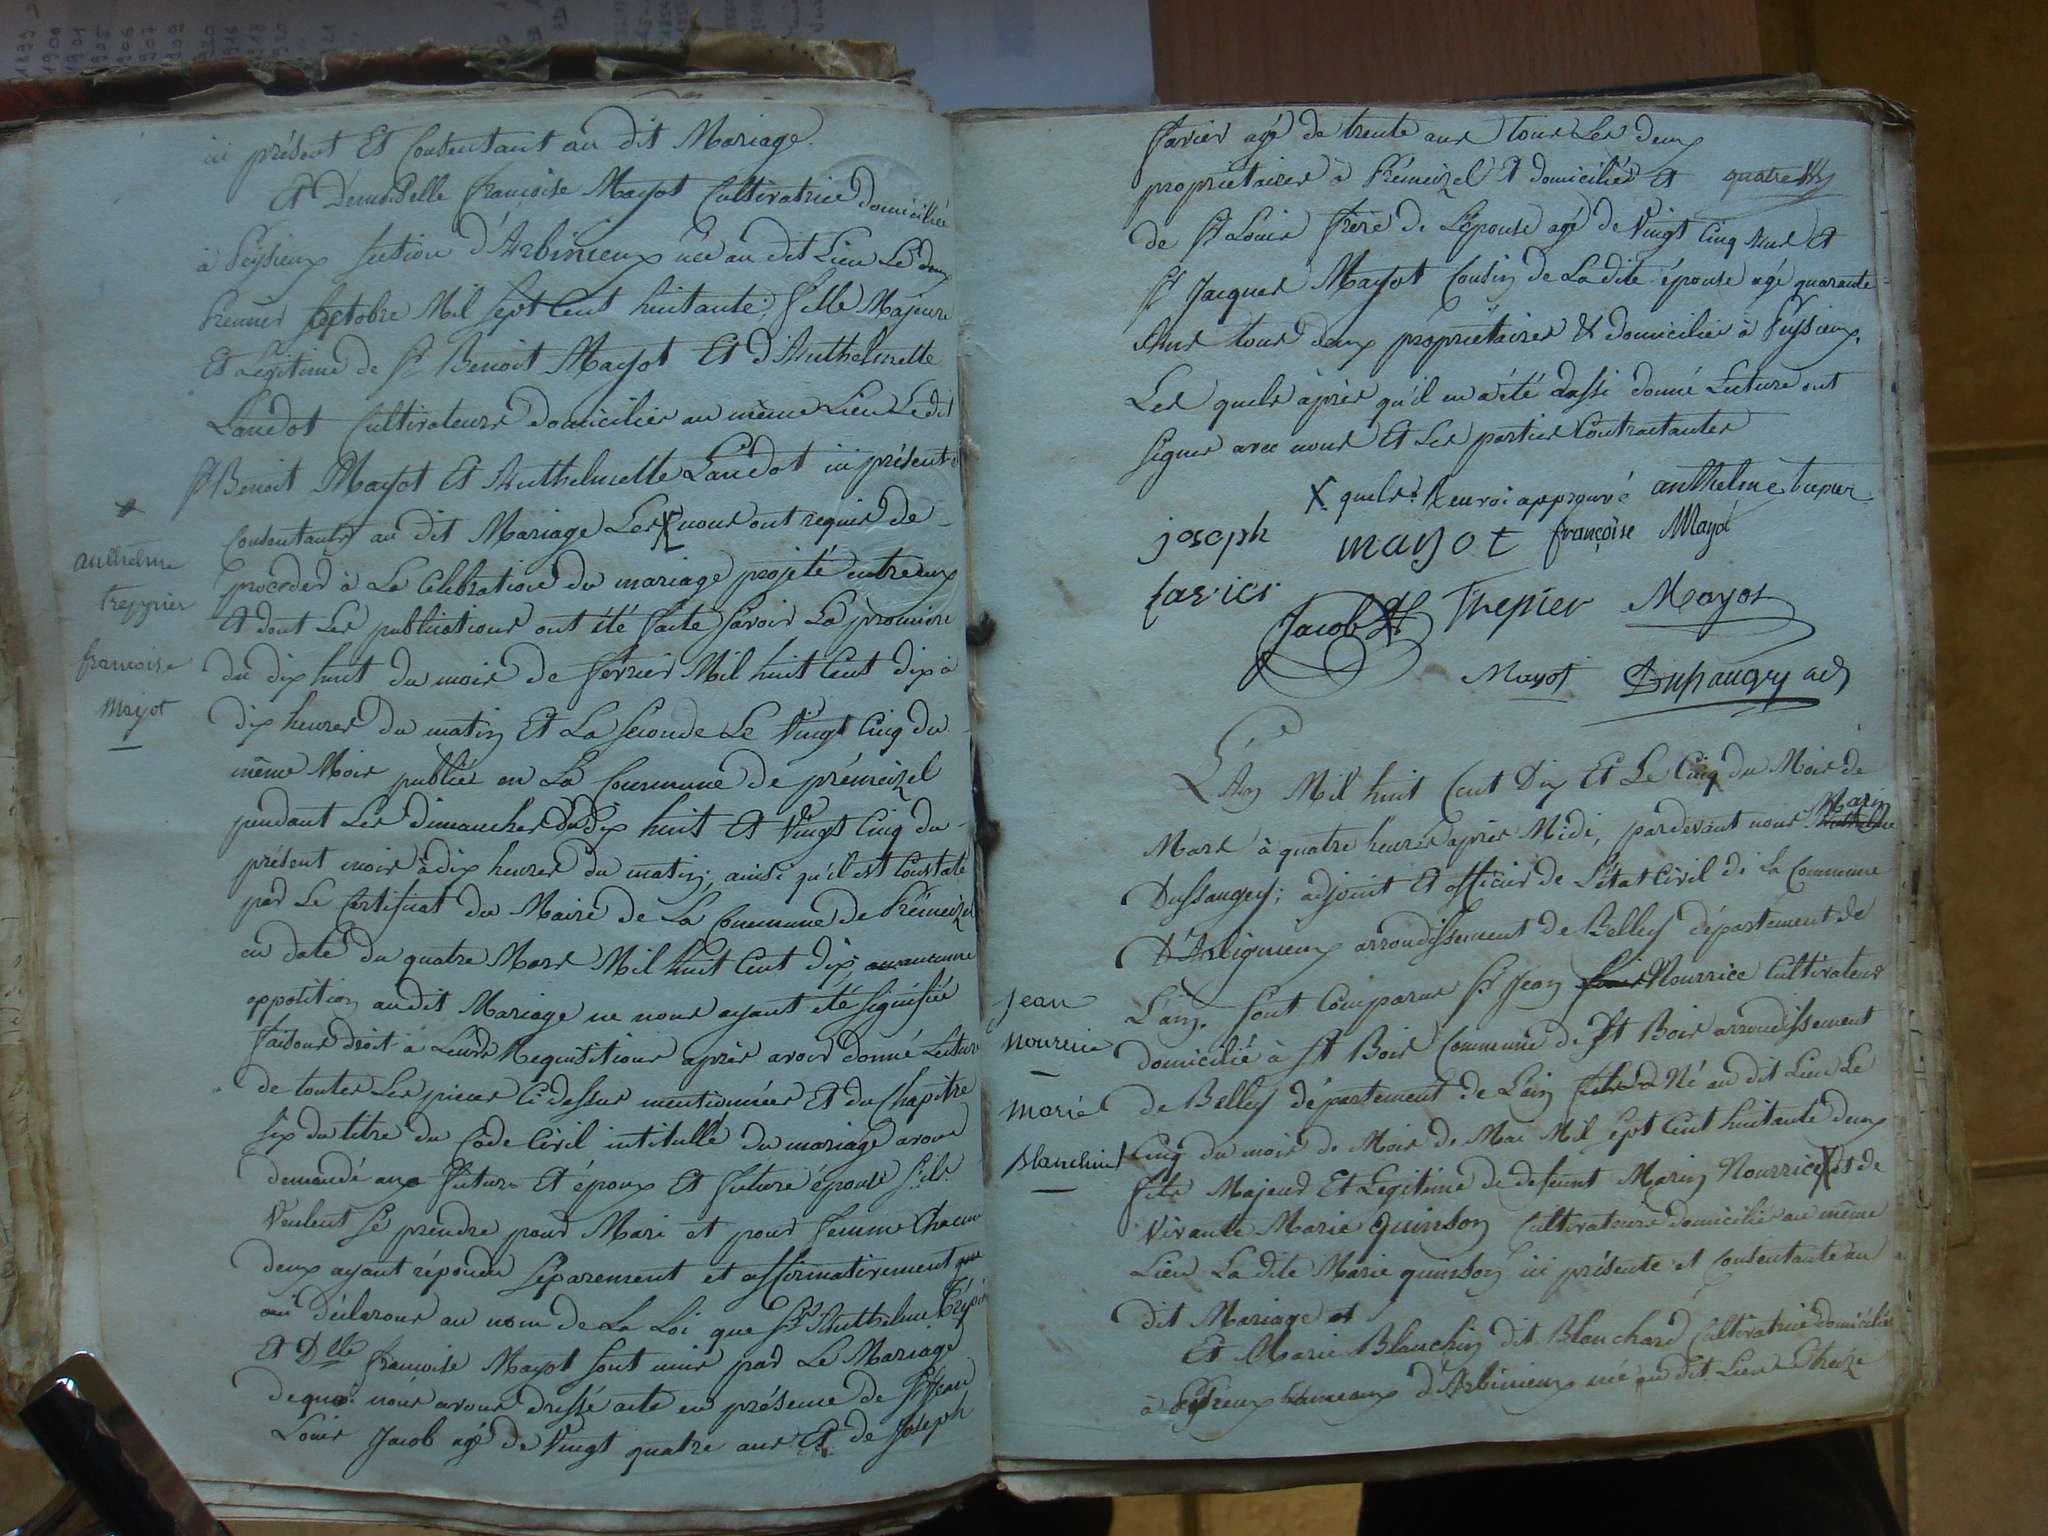 ici présent Et Consentant au dit Mariage.
Et Demoiselle françoise Mayot Cultivatrice domiciliée
à Peysieux section d'Arbinieux née au dit Lieu Le
Premier Octobre Mil Sept Cent huitante, fille Majeure
Et Légitime de Sr Benoit Mayot Et d'Anthelmette
Landot Cultivateurs domiciliés au même Lieu Le dit
Sr Benoit Mayot Et Anthelmette Landot ici présents
Consentants au dit Mariage Les X nous ont requis de
proceder à La Célébration du mariage projeté entre eux
Et dont Les publications ont été faite Savoir La première
du dix huit du mois de fevrier Mil huit Cent dix à
dix heures du matin Et La seconde Le Vingt Cinq du
même Mois publiée en La Commune de prémeizel
pendant Les dimanches dix huit Et Vingt Cinq du
présent mois à dix heures du matin, ainsi qu'il est Constaté
par Le Certificat du Maire de La Commune de Prémeizel
en date du quatre Mars Mil huit Cent dix, aucunne
opposition au dit Mariage ne nous ayant été signifiée
faisons droit à Leurs Requisitions après avoir donné Lecture
de toutes Les pieces Ci dessus mentionnées Et du Chapitre
six du titre du Code Civil intitullé du mariage avons
demandé aux futurs Et époux Et future épouse s'ils
Veulent se prendre pour Mari et pour femme Chacun
deux ayant répondu séparément et affirmativement
Déclarons au nom de La Loi que Sr Anthelme Trépié
Et Dlle francoise Mayot sont unis par Le Mariage
de quoi nous avons dressé acte en présence de Sr Jean
Louis Jacob agé de Vingt quatre ans Et de Joseph
anthelme
trepnier
francoise
Mayot
favier agé de trente ans tous Les deux
propriétaires à Prémeizel Et domiciliés Et
de Sr Louis frère de L'épouse agé de Vingt Cinq Ans Et
Sr Jacques Mayot Cousin de La dite épouse agé quarante
Ans tous deux propriétaires & domiciliés à Peysieux.
Les quels après qu'il en a été aussi donné Lecture ont
signés avec nous Et Les parties Contractantes
X quels Renvoi approuvé anthelme
joseph mayot françoise Mayot
favier
Jacob Trepier Mayot
Mayot Dussaugey adj
L'An Mil huit Cent Dix Et Le Cinq du Mois de
Mars à quatre heures après Midi, pardevant nous Marin
Dussaugey; adjoint Et officier de L'état Civil de La Commune
D'Arbignieux arrondissement de Belley département de
L'ain. sont Comparus Sr Jean Nourrice Cultivateur
domicilié à St Bois Commune de St Bois arrondissement
de Belley département de L'ain Né au dit Lieu Le
Cinq du mois de Mois de Mai Mil sept Cent huitante deux
fils Majeur Et Légitime de defeunt Marin Nourrice X et de
Vivante Marie Quinson Cultivateurs domiciliés au même
Lieu La dite Marie quinson ici présente et Consentante au
dit Mariage et
Et Marie Blanchin dit Blanchard Cultivatrice domiciliée
à hameaux d'Arbinieux née au dit Lieu Le treize
Jean
Nourrice
Marie
Blanchin